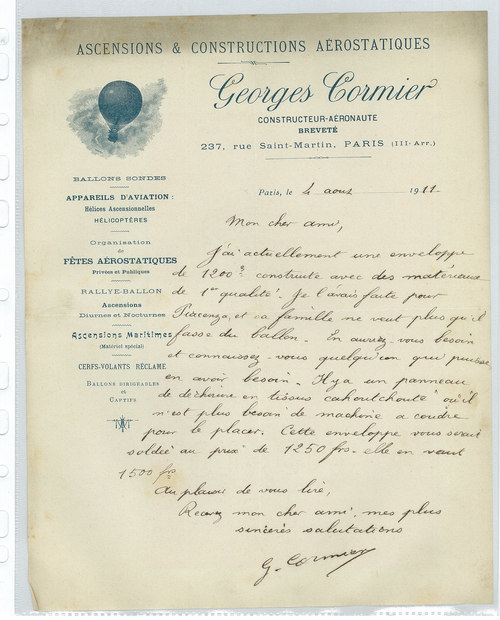 ASCENSIONS & CONSTRUCTIONS AÉROSTATIQUES
Georges Cormier
CONSTRUCTEUR-AÉRONAUTE
BREVETÉ
237, rue Saint-Martin, PARIS (III-Arr.)
BALLONS SONDES
APPAREILS D'AVIATION :
Hélices Ascensionnelles
HÉLICOPTÈRES
Organisation
de
FÊTES AÉROSTATIQUES
Privées et Publiques
RALLYE-BALLON
Ascensions
Diurnes et Nocturnes
Ascensions Maritimes
(Matériel spécial)
CERFS-VOLANTS RÉCLAME
BALLONS DIRIGEABLES
ET
CAPTIFS
Paris, le 4 aout 1911-
Mon cher ami,
J'ai actuellement une enveloppe
de 1200 construite avec des matériaux
de 1er qualité. Je l'avais faite pour
Piacenza, et sa famille ne veut plus qu'il
fasse du ballon. En auriez-vous besoin
et connaissez-vous quelqu'un qui puisse
en avoir besoin. Il y a un panneau
de déchirure en tissus cahoutchouté où il
n'est plus besoin de machine a coudre
pour le placer. Cette enveloppe vous serait
soldée au prix de 1250 frs. elle en vaut
1500 frs
Au plaisir de vous lire,
Recevez mon cher ami, mes plus
sincères salutations
G. Cormier